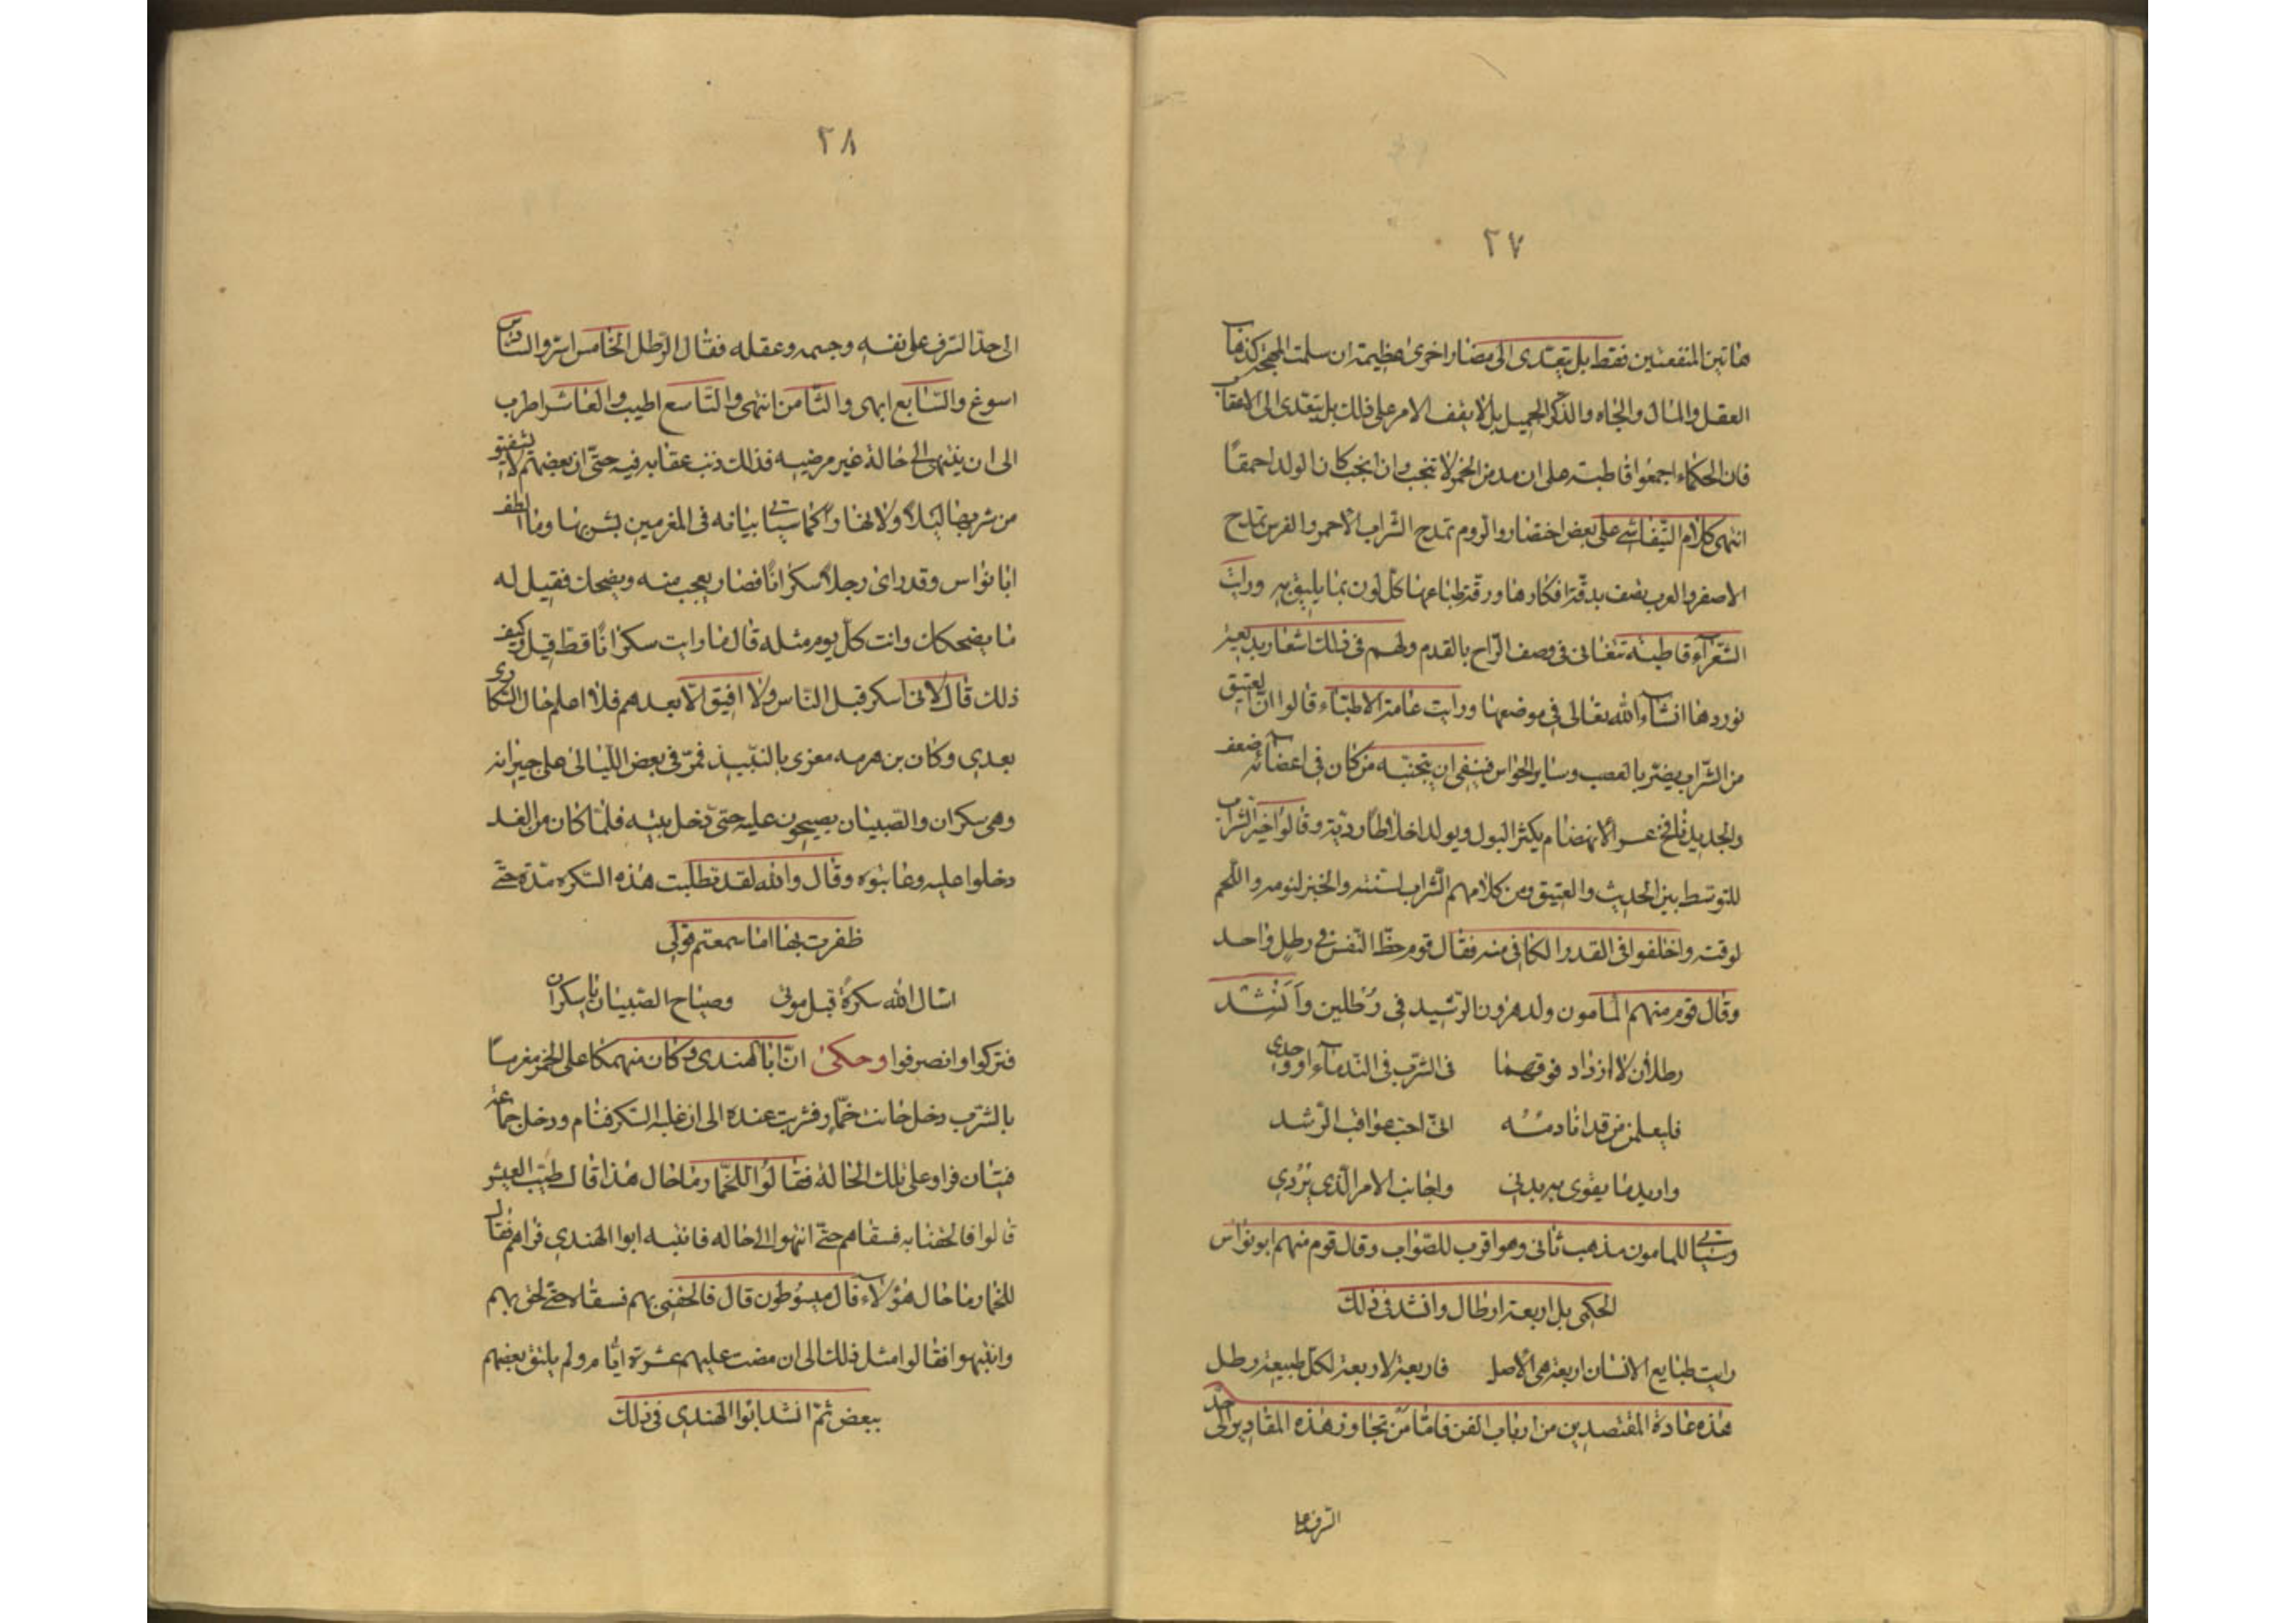 ٢٧
هاتين المنفعتين فقط بل يتعدى الى مضار اخرى عظيمة ان سلمت المهجة كذهاب
العقل والمال والجاه والذكر الجميل بل لا يقف الامر على ذلك بل يتعدى الى الاعقاب
فان الحكماء اجمعوا قاطبة على ان مدمن الخمر لا تنجب وان انجب كان الولد احمقًا
انتهى كلام التيفاشي على بعض اختصار والروم تمدح الشراب الاحمر والفرس تمدح
الاصفر والعرب تصف بدقة افكارها ورقة طباعها كل لون بما يليق به ورات
الشعرآء قاطبة تتغانى في وصف الراح بالقدم ولهم في ذلك اشعار بديعة
نوردها انشاء الله تعالى في موضعها ورايت عامة الاطباء قالوا ان العتيق
من الشراب يضر بالعصب وساير الحواس فينبغي ان يتجنبه من كان في اعضائه ضعف
والجديد نافخ عسر الانهضام يكثر البول ويولد اخلاطًا ردية وقالوا خير الشراب
المتوسط بين الحديث والعتيق ومن كلامهم الشراب لسنته والخبز ليومه واللحم
لوقته واختلفوا في القدر الكافي منه فقال قوم حظ النفس في رطل واحد
وقال قوم منهم المامون ولد هرون الرشيد في رطلين وَاَنْشَد
رطلان لا ازداد فوقهما في الشرب في الندمآء او وحدي
فليعلمن من قد انادمُه انى احب عواقب الرشد
واريد ما يقوى به بدني واجانب الامر الذي يُرْدِي
وسياتي للمامون مذهب ثاني وهو اقرب للصواب وقال قوم منهم ابو نواس
الحكمي بل اربعة ارطال وانشد في ذلك
رايت طبايع الانسان اربعة هي الاصل فاربعة لاربعة لكل طبيعة رطل
هذه عادة المقتصدين من ارباب الفن فاما من تجاوز هذه المقادير الى حد
السرف على
٢٨
الى حد السرف على نفسه وجسمه وعقله فقال الرطل الخامس اسر والسادس
اسوغ والسابع ابهى والثامن انتهى والتاسع اطيب والعاشر اطرب
الى ان ينتهى الى حالة غير مرضيه فذلك ذنب عقابه فيه حتى ان بعضهم لا يستفيق
من شربها ليلًا ولا نهارًا كما سياتي بيانه في المغرمين بشربها وما الطف
ابا نواس وقد راى رجلًا سكرانًا فصار يعجب منه ويضحك فقيل له
ما يضحكك وانت كل يوم مثله قال ما رايت سكرانًا قط قيل وكيف
ذلك قال لانى اسكر قبل الناس ولا افيق الّا بعدهم فلا اعلم حال السكارى
بعدي وكان بن هرمه مغرى بالنبيذ فمرّ في بعض الليالى على جيرانه
وهو سكران والصبيان يصيحون عليه حتى دخل بيته فلما كان من الغد
دخلوا عليه وعاتبوه وقال والله لقد تطلبت هذه السكره مدّة حتى
ظفرت بها اما سمعتم قولى
اسال الله سكرةً قبل موتى وصياح الصبيان يا سكران
فتركوا وانصرفوا وحكى انّ ابا الهندى وكان منهمكا على الخمر مغرمًا
بالشرب دخل حانت خمّار فشرب عنده الى ان غلبه السكر فنام ودخل جماعة
فتيان فراوه على تلك الحالة فقالوا للخمار ما حال هذا قال طيب العيش
قالوا فالحقنا به فسقاهم حتى انتهوا الى حاله فانتبه ابوا الهندي فراهم فقال
للخمار ما حال هؤلاء قال مبسوطون قال فالحقني بهم فسقاه حتى لحق بهم
وانتبهوا فقالوا مثل ذلك الى ان مضت عليهم عشرة ايّام ولم يلتق بعضهم
ببعض ثم انشد ابوا الهندي في ذلك